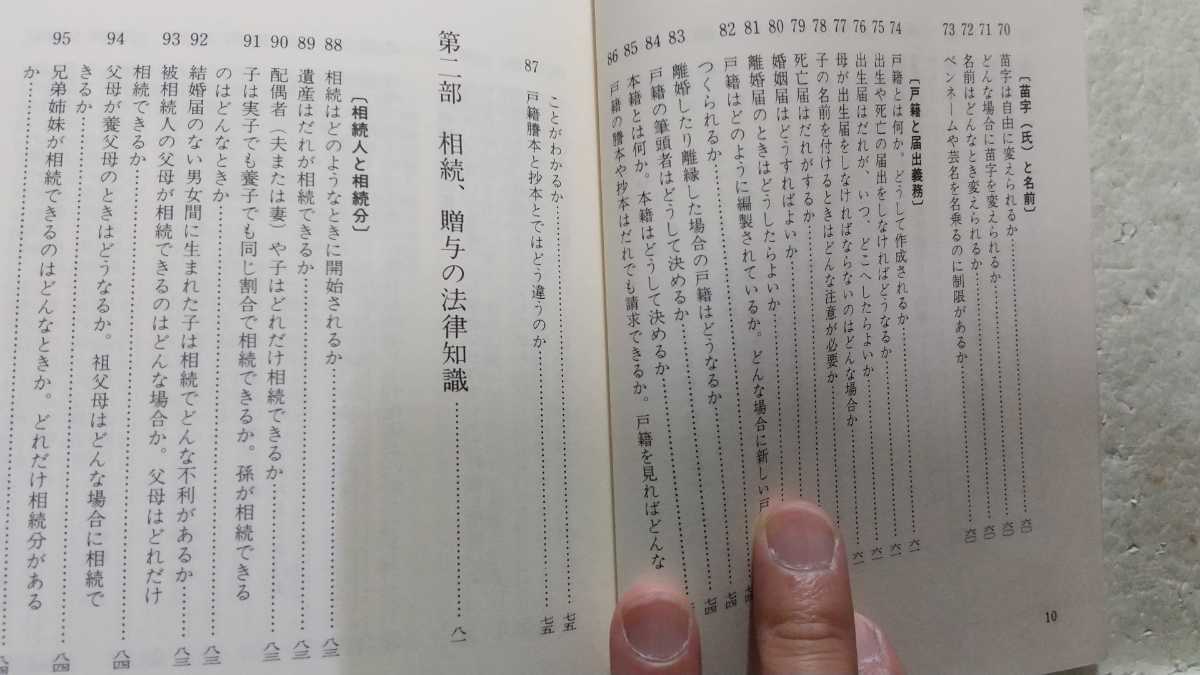 〔苗字（氏）と名前〕
70 苗字は自由に変えられるか……六〇
71 どんな場合に苗字を変えられるか……六〇
72 名前はどんなとき変えられるか……六〇
73 ペンネームや芸名を名乗るのに制限があるか
〔戸籍と届出義務〕
74 戸籍とは何か。どうして作成されるか……六一
75 出生や死亡の届出をしなければどうなるか……六一
76 出生届はだれが、いつ、どこへしたらよいか……六一
77 母が出生届をしなければならないのはどんな場合か……六一
78 子の名前を付けるときはどんな注意が必要か
79 死亡届はだれがするか
80 婚姻届はどうすればよいか
81 離婚届のときはどうしたらよいか
82 戸籍はどのように編製されているか。どんな場合に新しい戸
つくられるか……七四
83 離婚したり離縁した場合の戸籍はどうなるか……七四
84 戸籍の筆頭者はどうして決めるか
85 本籍とは何か。本籍はどうして決めるか
86 戸籍の謄本や抄本はだれでも請求できるか。戸籍を見ればどんな
10
ことがわかるか……七五
87 戸籍謄本と抄本とではどう違うのか……七五
第二部 相続、贈与の法律知識……八一
〔相続人と相続分〕
88 相続はどのようなときに開始されるか……八三
89 遺産はだれが相続できるか……八三
90 配偶者（夫または妻）や子はどれだけ相続できるか……八三
91 子は実子でも養子でも同じ割合で相続できるか。孫が相続できる
のはどんなときか……八三
92 結婚届のない男女間に生まれた子は相続でどんな不利があるか……八三
93 被相続人の父母が相続できるのはどんな場合か。父母はどれだけ
相続できるか……八四
94 父母が養父母のときはどうなるか。祖父母はどんな場合に相続で
きるか……八四
95 兄弟姉妹が相続できるのはどんなときか。どれだけ相続分がある
か……八四